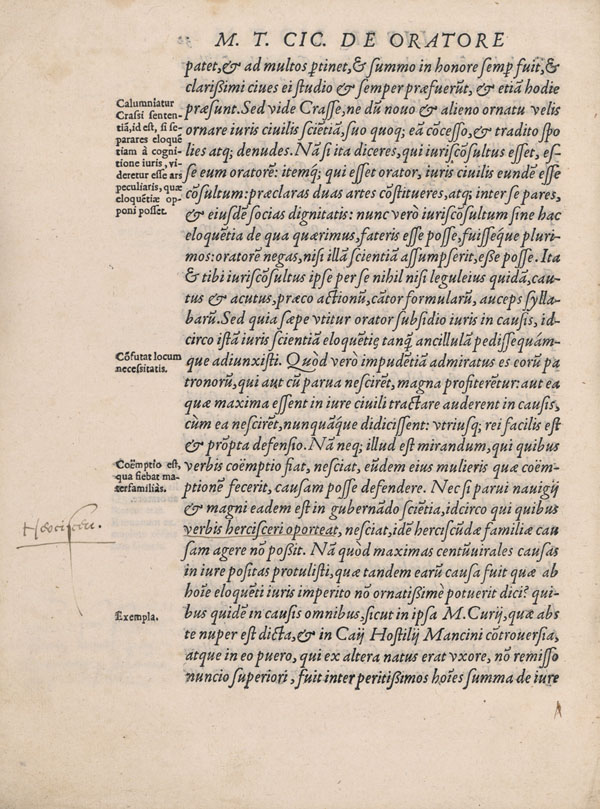 M. T. CIC. DE ORATORE
patet, & ad multos ꝑtinet, & summo in honore semꝑ fuit, &
clarißimi ciues ei studio & semper præfuerũt, & etiã hodie
præsunt. Sed vide Crasse, ne dũ nouo & alieno ornatu velis
ornare iuris ciuilis sciẽtiã, suo quoq; eã cõcesso, & tradito spo
lies atq; denudes. Nã si ita diceres, qui iuriscõsultus esset, es-
se eum oratorẽ: itemq; qui esset orator, iuris ciuilis eundẽ esse
cõsultum: præclaras duas artes cõstitueres, atq; inter se pares,
& eiusdẽ socias dignitatis: nunc verò iuriscõsultum sine hac
eloquẽtia de qua quærimus, fateris esse posse, fuisseque pluri-
mos: oratorẽ negas, nisi illã scientiã assumpserit, eße posse. Ita
& tibi iuriscõsultus ipse per se nihil nisi leguleius quidã, cau-
tus & acutus, præco actionũ, cãtor formularũ, auceps sylla-
barũ. Sed quia sæpe vtitur orator subsidio iuris in causis, id-
circo istã iuris scientiã eloquẽtię tanq̃ ancillulã pedissequám-
que adiunxisti. Quòd verò impudẽtiã admiratus es eorũ pa
tronorũ, qui aut cũ parua nescirẽt, magna profiterẽtur: aut ea
quæ maxima essent in iure ciuili tractare auderent in causis,
cùm ea nescirẽt, nunquã que didicissent: vtriusq; rei facilis est
& prõpta defensio. Nã neq; illud est mirandum, qui quibus
verbis coëmptio fiat, nesciat, eũdem eius mulieris quæ coëm-
ptionẽ fecerit, causam posse defendere. Nec si parui nauigij
& magni eadem est in gubernãdo sciẽtia, idcirco qui quibus
verbis hercisceri oporteat, nesciat, idẽ herciscũdæ familiæ cau
sam agere nõ poßit. Nã quòd maximas centũuirales causas
in iure positas protulisti, quæ tandem earũ causa fuit quæ ab
hoĩe eloquẽti iuris imperito nõ ornatißimè potuerit dici? qui-
bus quidẽ in causis omnibus, sicut in ipsa M. Curij, quæ abs
te nuper est dicta, & in Caij Hostilij Mancini cõtrouersia,
atque in eo puero, qui ex altera natus erat vxore, nõ remisso
nuncio superiori, fuit inter peritißimos hoĩes summa de iure
Calumniatur
Crassi senten-
tiã, id est, si se-
parares eloquẽ
tiam à cogni-
tione iuris, vi-
deretur esse ars
peculiaris, quæ
eloquẽtiæ op-
poni posset.
Cõfutat locum
necessitatis.
Coëmptio est,
qua fiebat ma-
terfamiliâs.
Exempla.